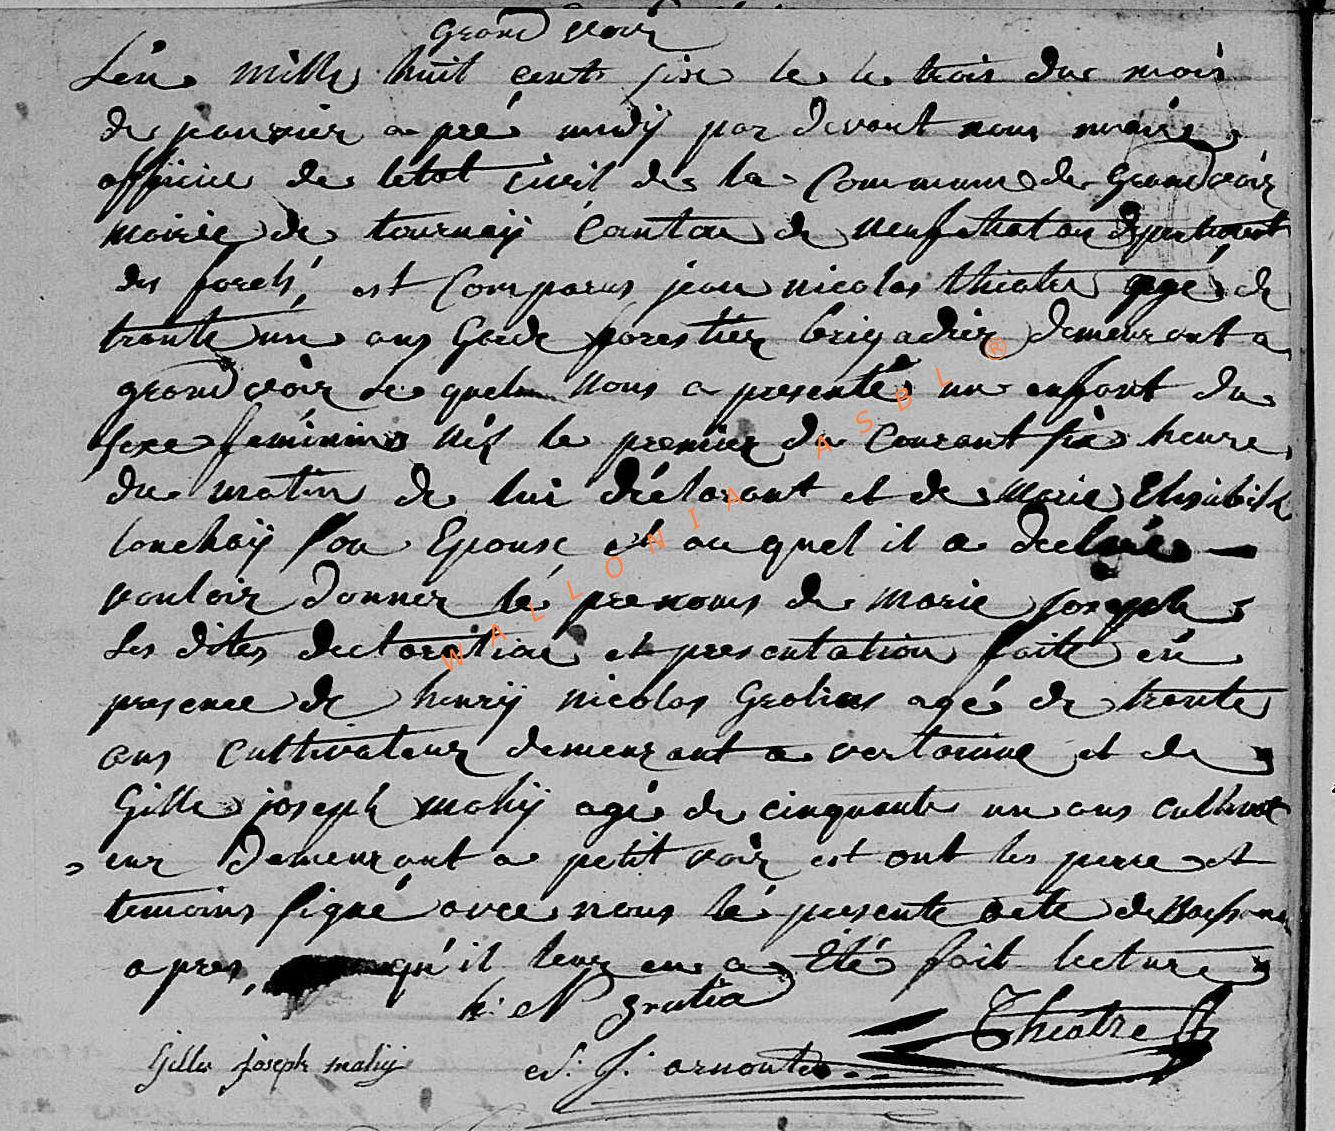 Grand voir
L'én mille huit cent six le le trois du mois
de janvier a pré midÿ par devant nous maire
officier de letat civil de la Commune de Grandvoir
mairie de tournaÿ Canton de neufchatau département
des forets, est Comparus jean nicolas theatre agé de
trente un ans Garde forestier brigadier demeurant a
grand voir le quel nous a presenté un enfant du
sexe feminin néz le premier du Courant six heure
du matin de lui déclarant et de Marie Elisabeth
lonchaÿ son Epouse et au quel il a declaré
vouloir donner lé prenoms de marie joseph
Les dites declaration et presentation faite én
presence de henrÿ nicolas agé de trente
ans Cultivateur demeurant a vertainne et de
Gille joseph mahÿ agé de cinquante un ans cultivat
eur demeurant a petit voir et ont les perre et
temoins signé avec nous lé presente acte de
apres, qu'il leur en a été fait lecture
h: N
Theatre
Gille joseph mahÿ
J: arnould
WALLONIA ASBL ®